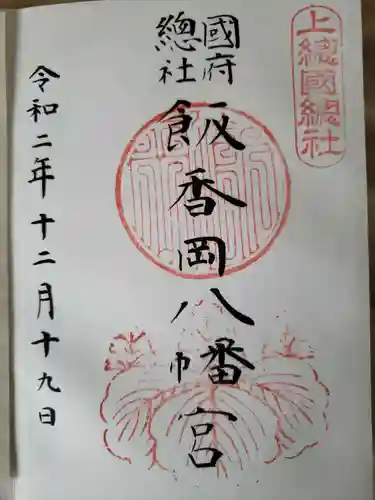 上總國總社
國府
總社
飯香岡八幡宮
令和二年十二月十九日